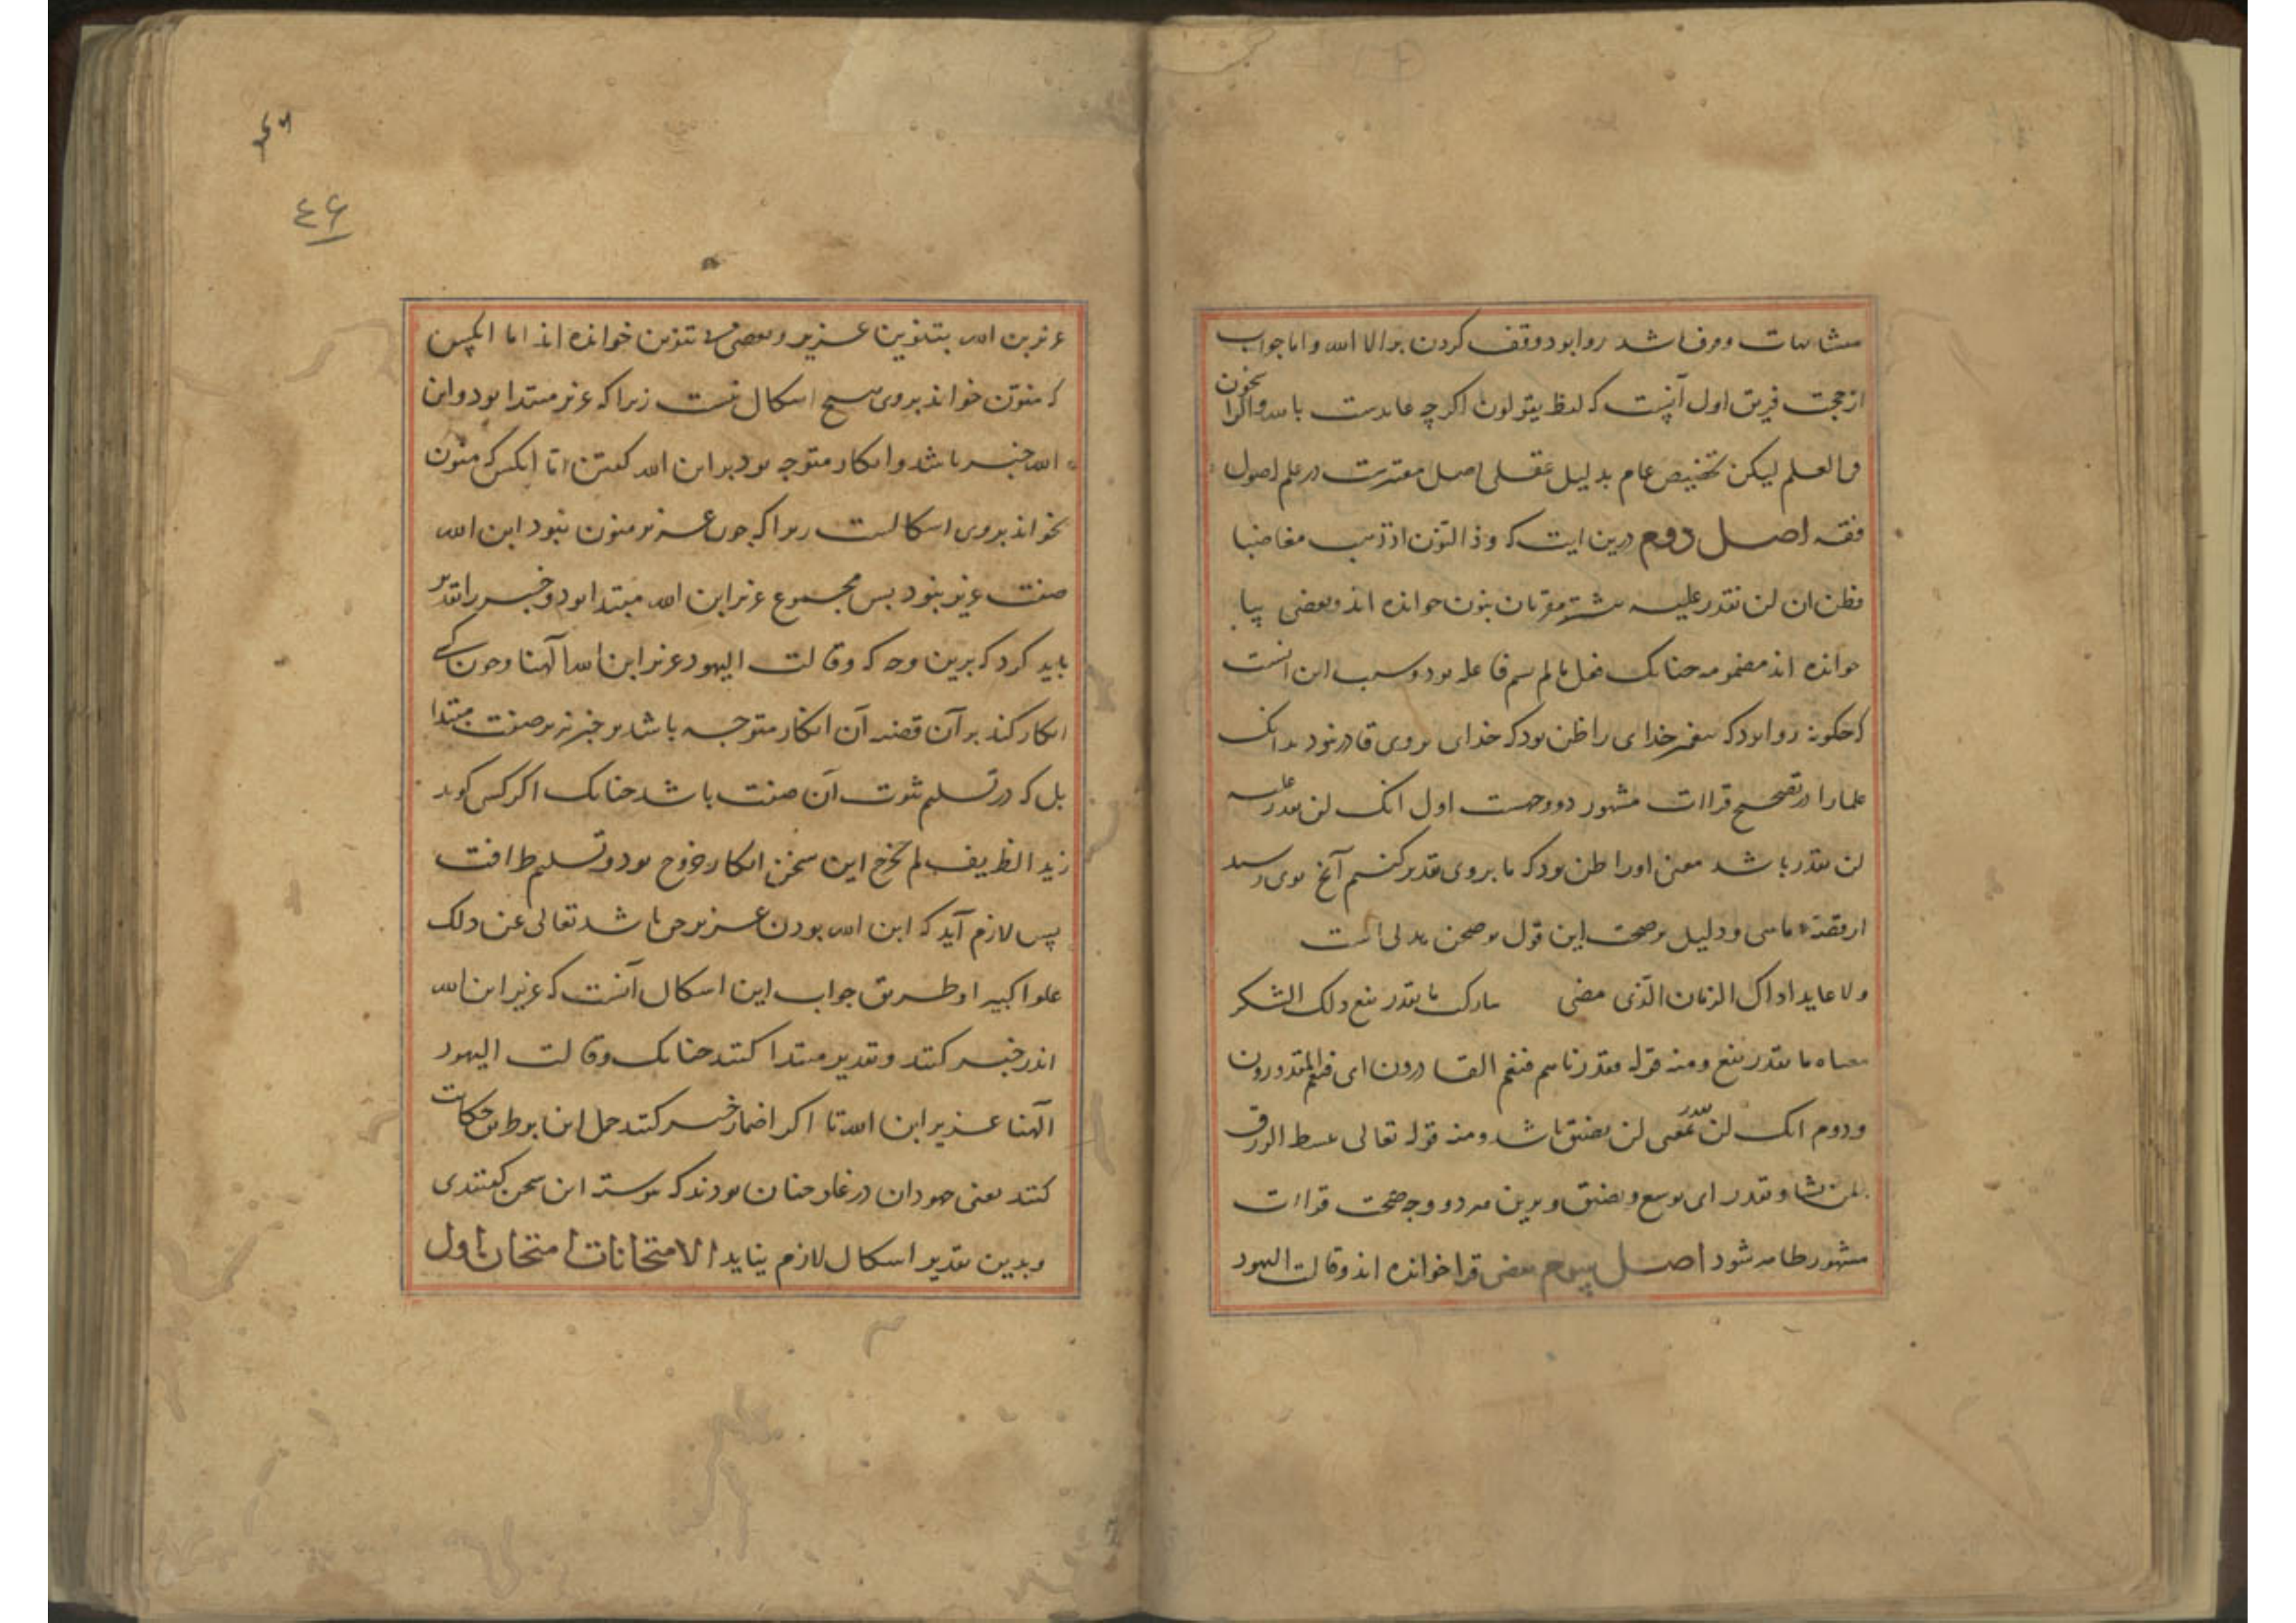 متشابهات و مرف باشد روا بود وقف کردن بر الا الله و اما جواب
از حجت فریق اول آنست که لفظ یقولون اکرچه عایدست بالله و الراسخون
فی العلم لیکن تخصیص عام بدلیل عقلی اصل مقررست در علم اصول
فقه اصل دوم درین ایت که وذا النون اذ ذهب مغاضبا
فظن ان لن نقدر علیه بیشتر مقریان بنون خوانده اند و بعضی بیا
خوانده اند مضمومه چنانک فعل مالم یسم فاعله بود و سبب این انست
که چکونه روا بود که پیغمبر خدای را ظن بود که خدای بر وی قادر نبود بدانک
علما را در تصحیح قراات مشهور دو وجهست اول انک لن نقدر علیه
لن نقدر باشد معنی او را ظن بود که ما بر وی تقدیر کنیم آنچ بوی رسید
از قصه ماهی و دلیل بر صحت این قول بوصخر هذلی است
ولا عایدا ذاک الزمان الذی مضی تبارکت ما تقدر یقع ولک الشکر
معناه ما تقدر یقع ومنه قوله فقدرناهم فنعم القادرون ای فنعم المقدرون
و دوم انک لن نقدر بمعنی لن نضیق باشد ومنه قوله تعالی یبسط الرزق
لمن یشاء ویقدر ای یوسع ویضیق و برین هر دو وجه صحت قراات
مشهور ظاهر شود اصل سوم بعضی قرا خوانده اند وقالت الیهود
عزیر بن الله بتنوین عزیر و بعضی بی تنوین خوانده اند اما انکس
که منون خواند بروی هیچ اشکال نیست زیرا که عزیر مبتدا بود و ابن
الله خبر باشد و انکار متوجه بود بر ابن الله کفتن اما انکس که منون
نخواند بروی اشکالست زیرا که چون عزیر منون نبود ابن الله
صفت عزیر بود بس مجموع عزیر ابن الله مبتدا بود و خبر را تقدیر
باید کرد که برین وجه که وقالت الیهود عزیر ابن الله آلهنا و چون کسی
انکار کند بر آن قضیه آن انکار متوجه باشد بر خبر نه بر صفت مبتدا
بل که در تسلیم ثبوت آن صفت باشد چنانک اکر کس کوید
زید الظریف لم یخرج این سخن انکار خروج بود و تسلیم ظرافت
پس لازم آید که ابن الله بودن عزیر حق باشد تعالی عن ذلک
علوا کبیرا و طریق جواب این اشکال آنست که عزیر ابن الله
اندر خبر کنند و تقدیر مبتدا کنند چنانک وقالت الیهود
آلهنا عزیر ابن الله تا اکر اضمار خبر کنند حمل این بر طریق حکایت
کنند یعنی جهودان در غلو چنان بودند که پیوسته این سخن کفتندی
و بدین تقدیر اشکال لازم نیاید الامتحانات امتحان اول
٤۶